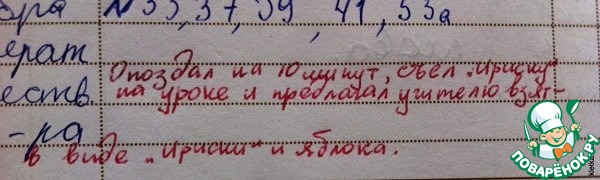 бра № 35, 37, 39, 41, 53а
ерат
Опоздал на 10 минут, съел „Ириску"
еств. на уроке и предлагал учителю взят-
-ра
в виде „Ириски" и яблока.
ПОВАРЁНОК.РУ